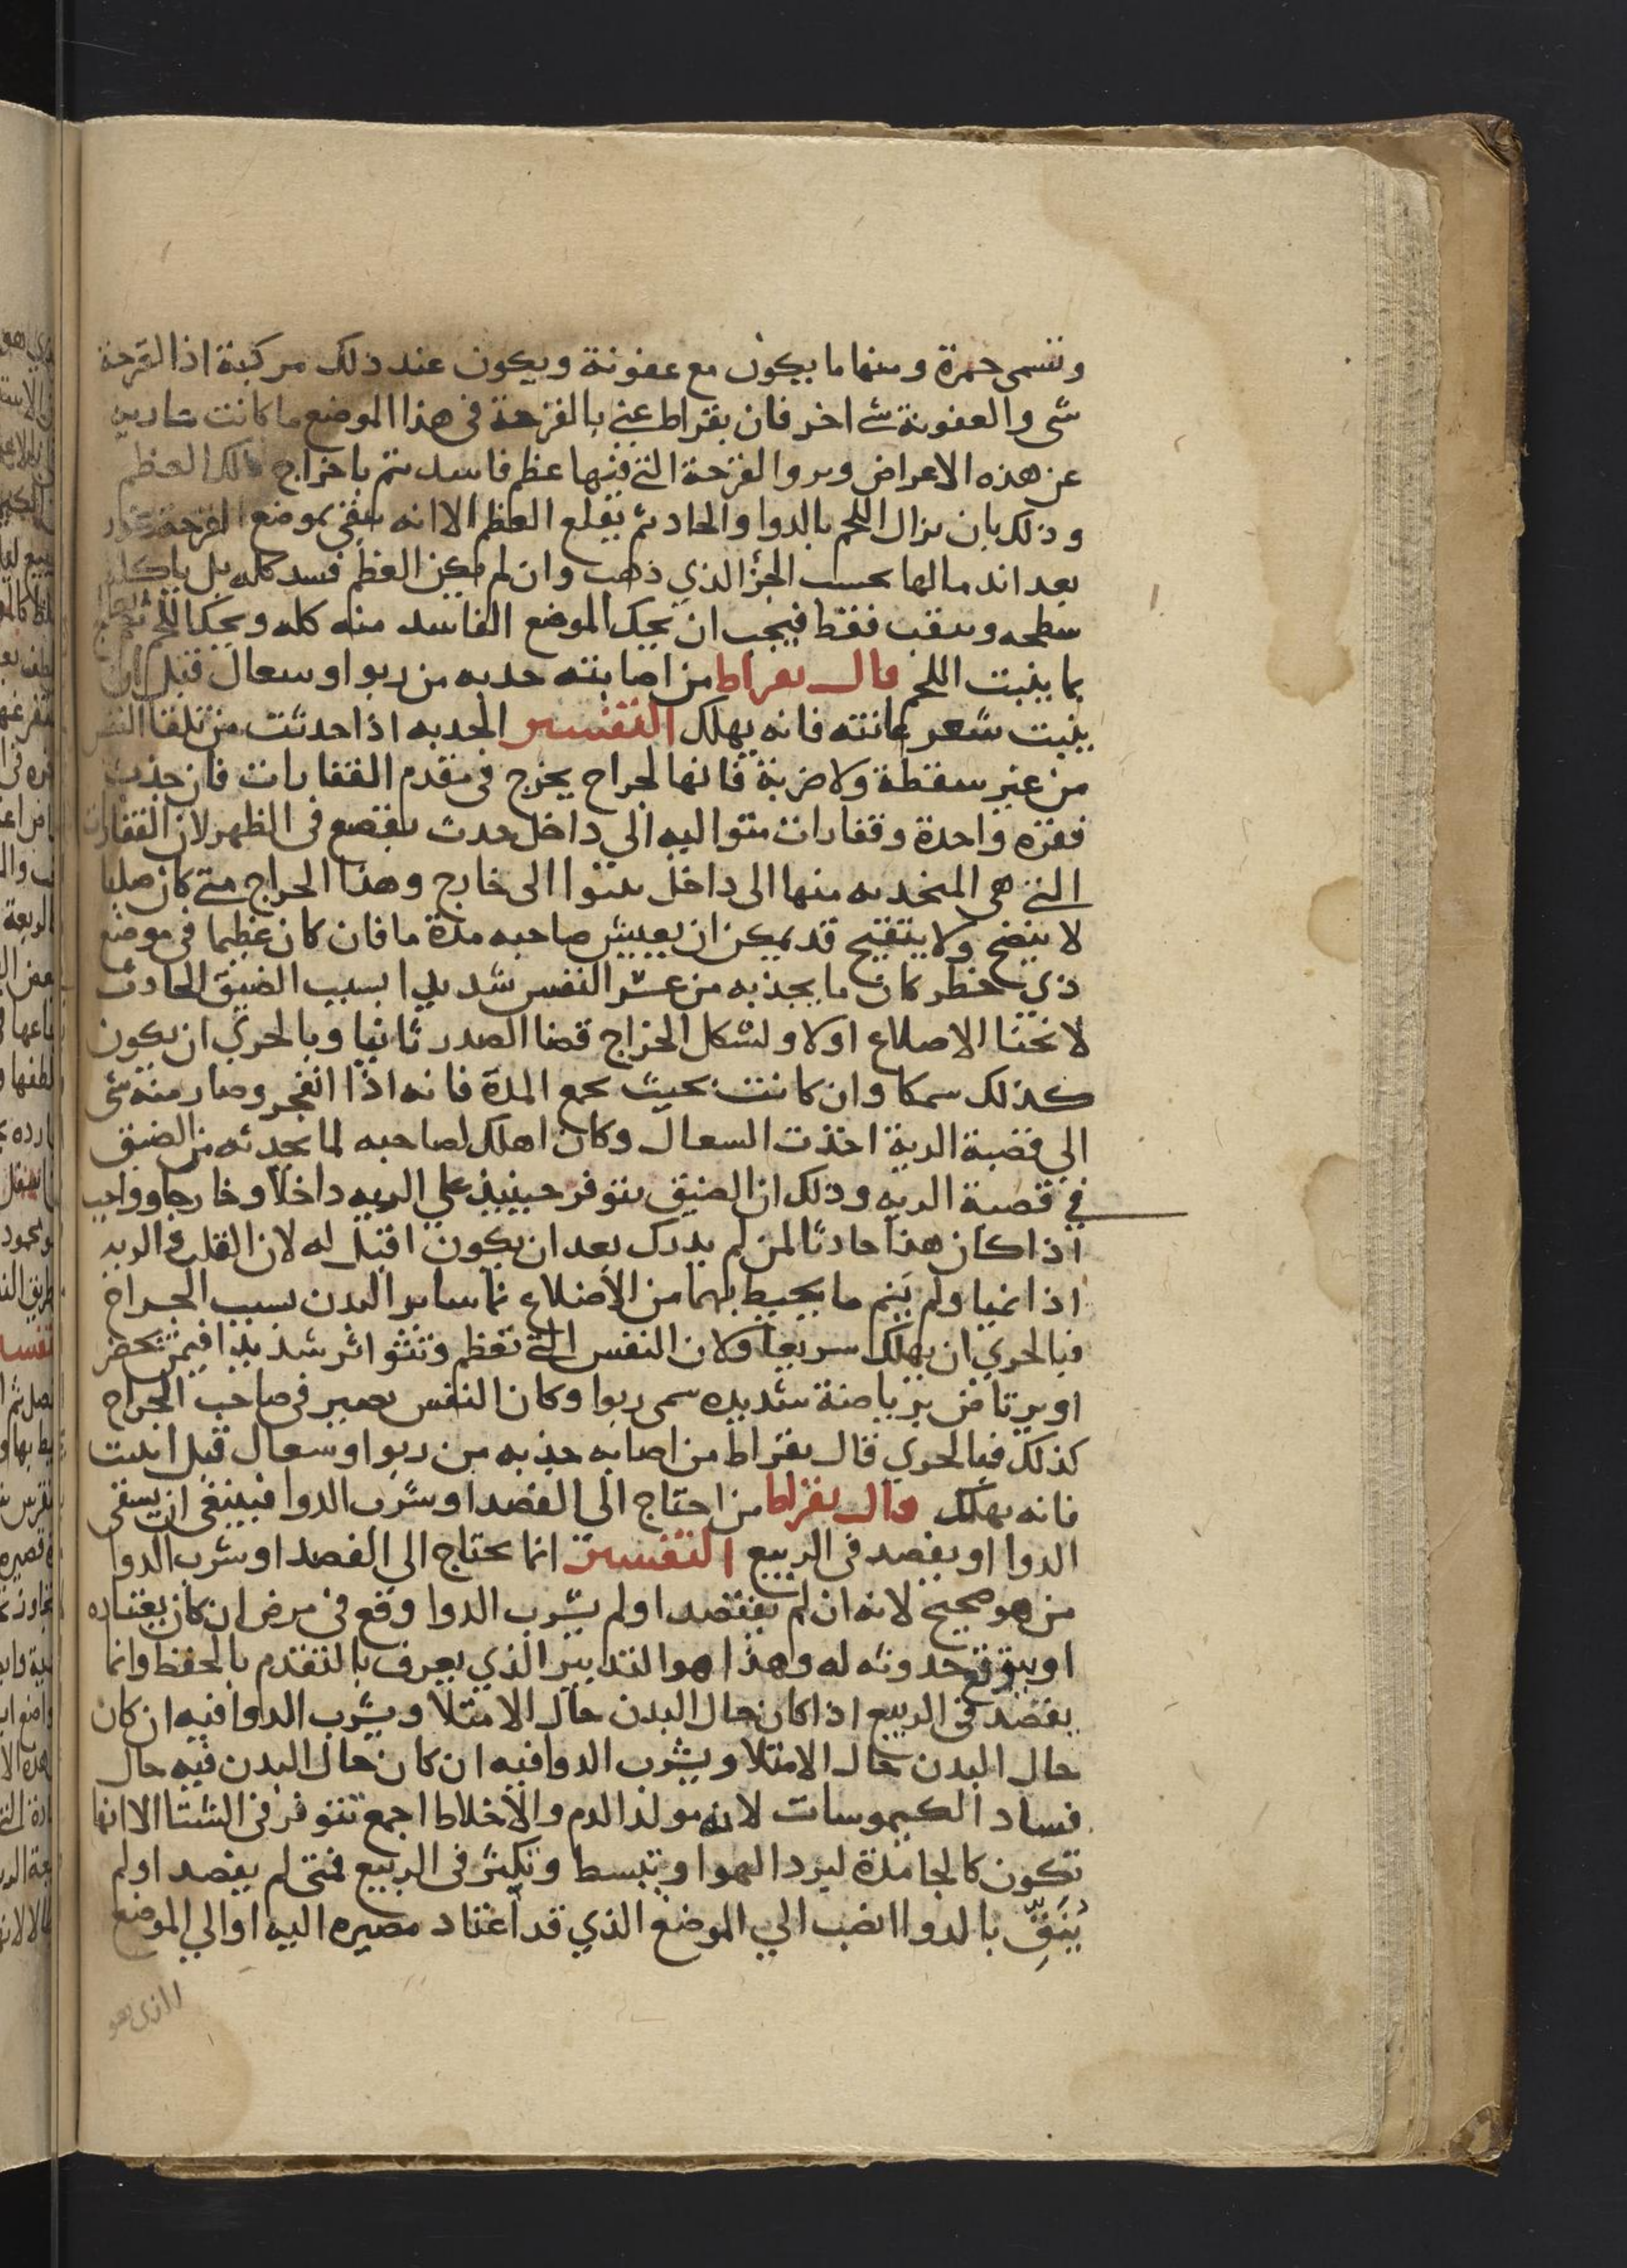 وتسمى حمرة ومنها ما يكون مع عفونة ويكون عند ذلك مركبة اذا القرحة
شى والعفونة شى اخر فان بقراط عنى بالقرحة فى هذا الموضع ما كانت
عن هذه الاعراض وبروا القرحة التى فيها عظم فاسد يتم باخراج ذلك العظم
وذلك بان يزال اللحم بالدوا والحاد ثم يقلع العظم الا انه يبقى بموضع القرحة
بعد اندمالها بحسب الجزا الذي ذهب وان لم يكن العظم فسد كله بل
سطحه وينقب فقط فيجب ان يحك الموضع الفاسد منه كله ويحك اللحم
بما ينبت اللحم قال بقراط من اصابته حدبه من ربو او سعال قبل ان
ينبت شعر عانته فانه يهلك التفسير الحدبه اذا حدثت من تلقا النفس
من غير سقطة ولا ضربة فانها لجراح يخرج فى مقدم الفقارات فان جذبت
فقره واحدة وفقارات متواليه الي داخل حدث تقصع فى الظهر لان الفقارات
التى هى المنحدبه منها الى داخل ينتوا الى خارج وهذا الجراج متى كان صلبا
لا ينضج ولا يتقيح قد يمكن ان يعيش صاحبه مدة ما فان كان عظيما فى موضع
ذي خطر كان ما يجذبه من عسر النفس شديدا بسبب الضيق الحادث
لانحنا الاصلاع اولا ولشكل الخراج قضا الصدر ثانيا وبالحري ان يكون
كذلك سمكا وان كانت بحيث يجمع المدة فانه اذا انفجر وصار منه شى
الي قصبة الرية اخذت السعال وكان اهلك لصاحبه لما يحدثه من الضيق
في قصبة الريه وذلك ان الضيق يتوفر حينيذ علي الريه داخلا وخارجا وواجب
اذا كان هذا حادثا لمن لم يدرك بعد ان يكون اقتل له لان القلب والريه
اذا نميا ولم ينم ما يحيط بهما من الاضلاع نما ساير البدن بسبب الجراح
فبالحري ان يهلك سريعا ولان النفس التى تعظم وتتواتر شديدا فيمن يحضر
او يرتاض برياضة شديده سمى ربوا وكان النفس يصير فى صاحب الجراح
كذلك فبالحري قال بقراط من اصابه حدبه من ربو او سعال قبل انبت
فانه يهلك قال بقراط من احتاج الى الفصد او شرب الدوا فينبغى ان يسقى
الدوا او يفصد فى الربيع التفسير انما يحتاج الي الفصد او شرب الدوا
من هو صحيح لانه ان لم يفتصد او لم يشرب الدوا وقع فى مرض ان كان يعتاده
او يتوقع حدوثه له وهذا هو التدبير الذي يعرف بالتقدم بالحفظ وانما
يفصد فى الربيع اذا كان حال البدن حال الامتلا ويشرب الدوا فيه ان كان
حال البدن حال الامتلا ويشرب الدوا فيه ان كان حال البدن فيه حال
فساد الكيموسات لانه مولد الدم والاخلاط اجمع تتوفر فى الشتا الا انها
تكون كالجامدة لبرد الهوا وتبسط وتكثر فى الربيع فمتى لم يفصد او لم
يُنَقِّ بالدوا انصب الي الموضع الذي قد اعتاد مصيره اليه او الي الموضع
الذى هو